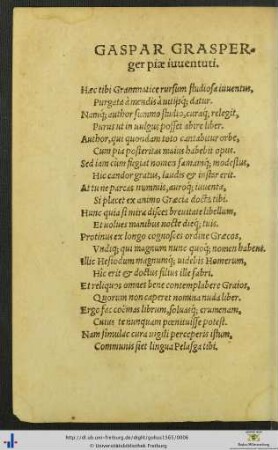 GASPAR GRASPER-
ger piæ iuuentuti.
Hæc tibi Grammatice rursum studiosa iuuentus,
Purgata à mendis à utijsq; datur.
Namq; author summo studio, curaq; relegit,
Purus ut in uulgus posset abire liber.
Author, qui quondam toto cantabitur orbe,
Cum pia posteritas maius habebit opus.
Sed iam cum fugiat nomen famamq; modestus,
Hic candor gratus, laudis & instar erit.
At tu ne parcas nummis, auroq; iuuenta,
Si placet ex animo Græcia docta tibi.
Hunc quia si mira disces breuitate libellum,
Et uolues manibus nocte dieq; tuis.
Protinus ex longo cognosces ordine Græcos,
Vndiq; qui magnum nunc quoq; nomen habent.
Illic Hesiodum magnumq; uidebis Homerum,
Hic erit & doctus filius ille fabri.
Et reliquos omnes bene contemplabere Graios,
Quorum non caperet nomina nuda liber.
Ergo fac coëmas librum, soluasq; crumenam,
Cuius te nunquam pœnituisse potest.
Nam simulac cura uigili perceperis istum,
Communis fiet lingua Pelasga tibi.
http://dl.ub.uni-freiburg.de/diglit/golius1562/0006
© Universitätsbibliothek Freiburg